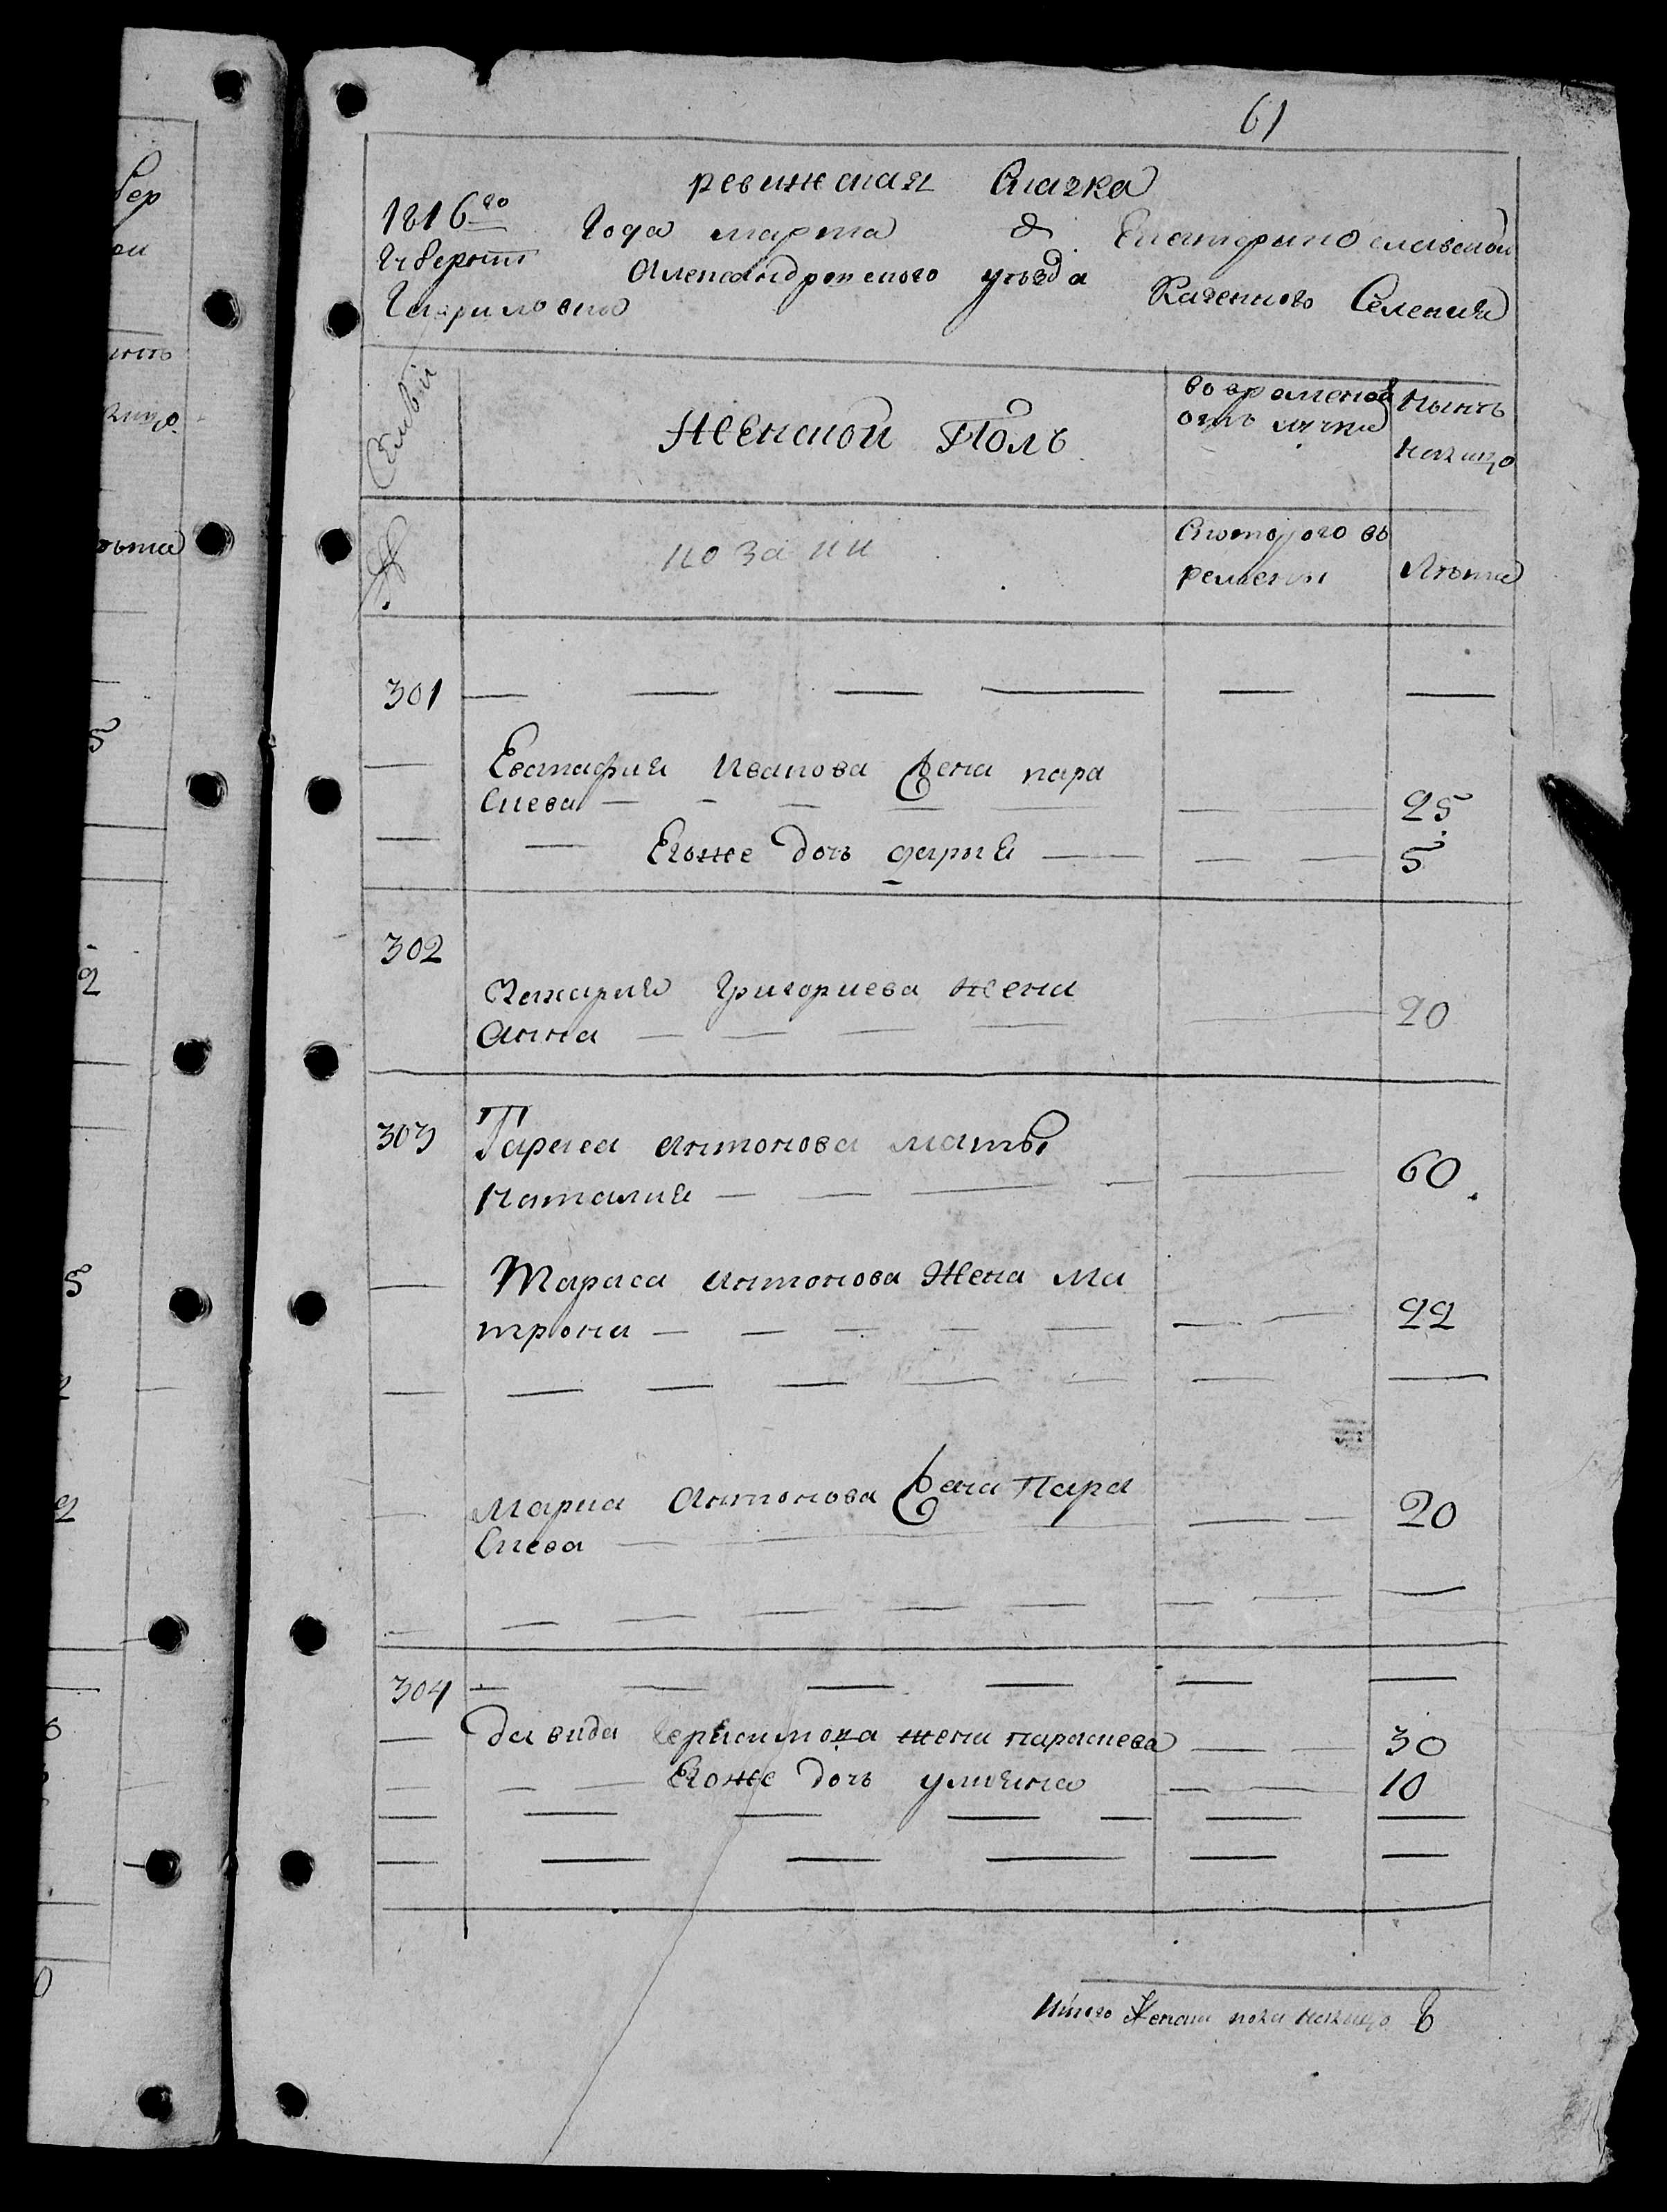 61
ревижская Сказка
1816го Года марта д Екатеринославской
Губернии Александровского уезда Казенного Селения
Гавриловки
Семьи
Женской Полъ
во временной отлучке
Нынѣ налицо
№
козаки
Скоторого времени
Лѣта
301
Евстафия Иванова Жена пара
скева 25
Егоже дочь дария 5
302
Захария Григориева жена
Анна 20
303 Тараса Антонова мать
Наталия 60
Тараса Антонова Жена Ма
трона 22
Марка Антонова Жена Пара
скева 20
304
давида Герасимова жена параскева 30
Егоже дочь улияна 10
Итого Женска пола налицо 8